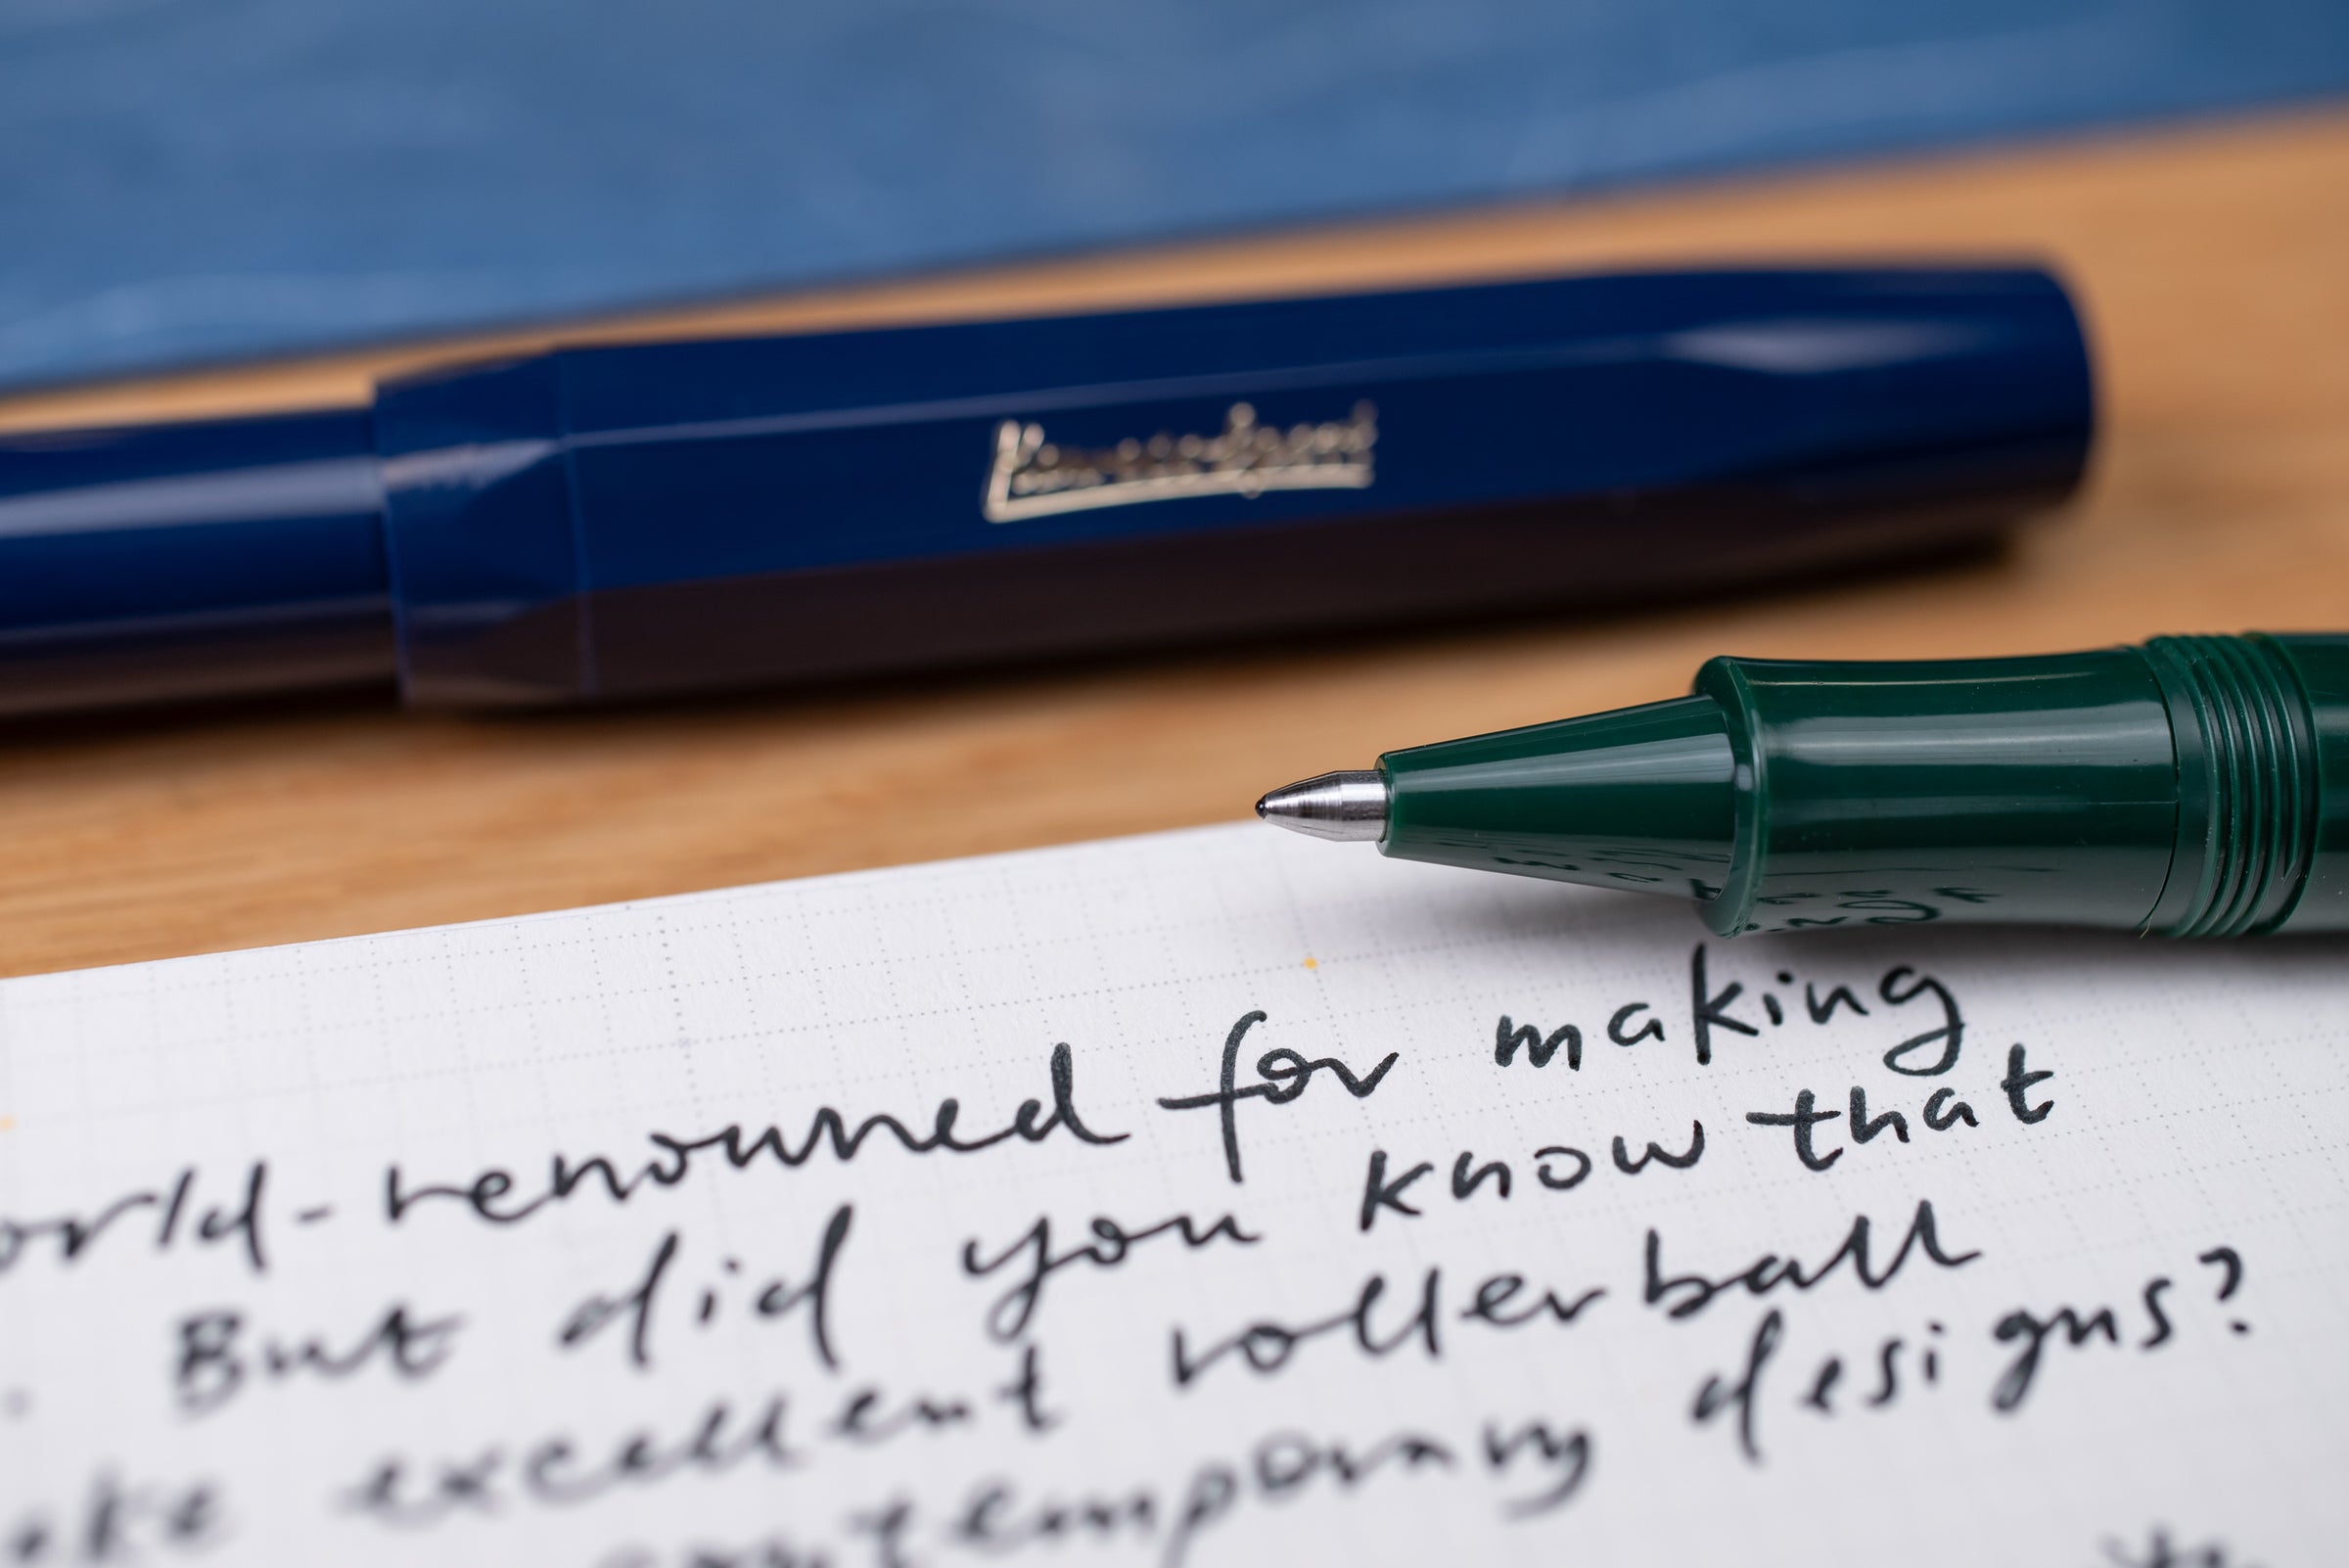 Kaweco Sport
world-renowned for making
. But did you know that
make excellent rollerball
contemporary designs?